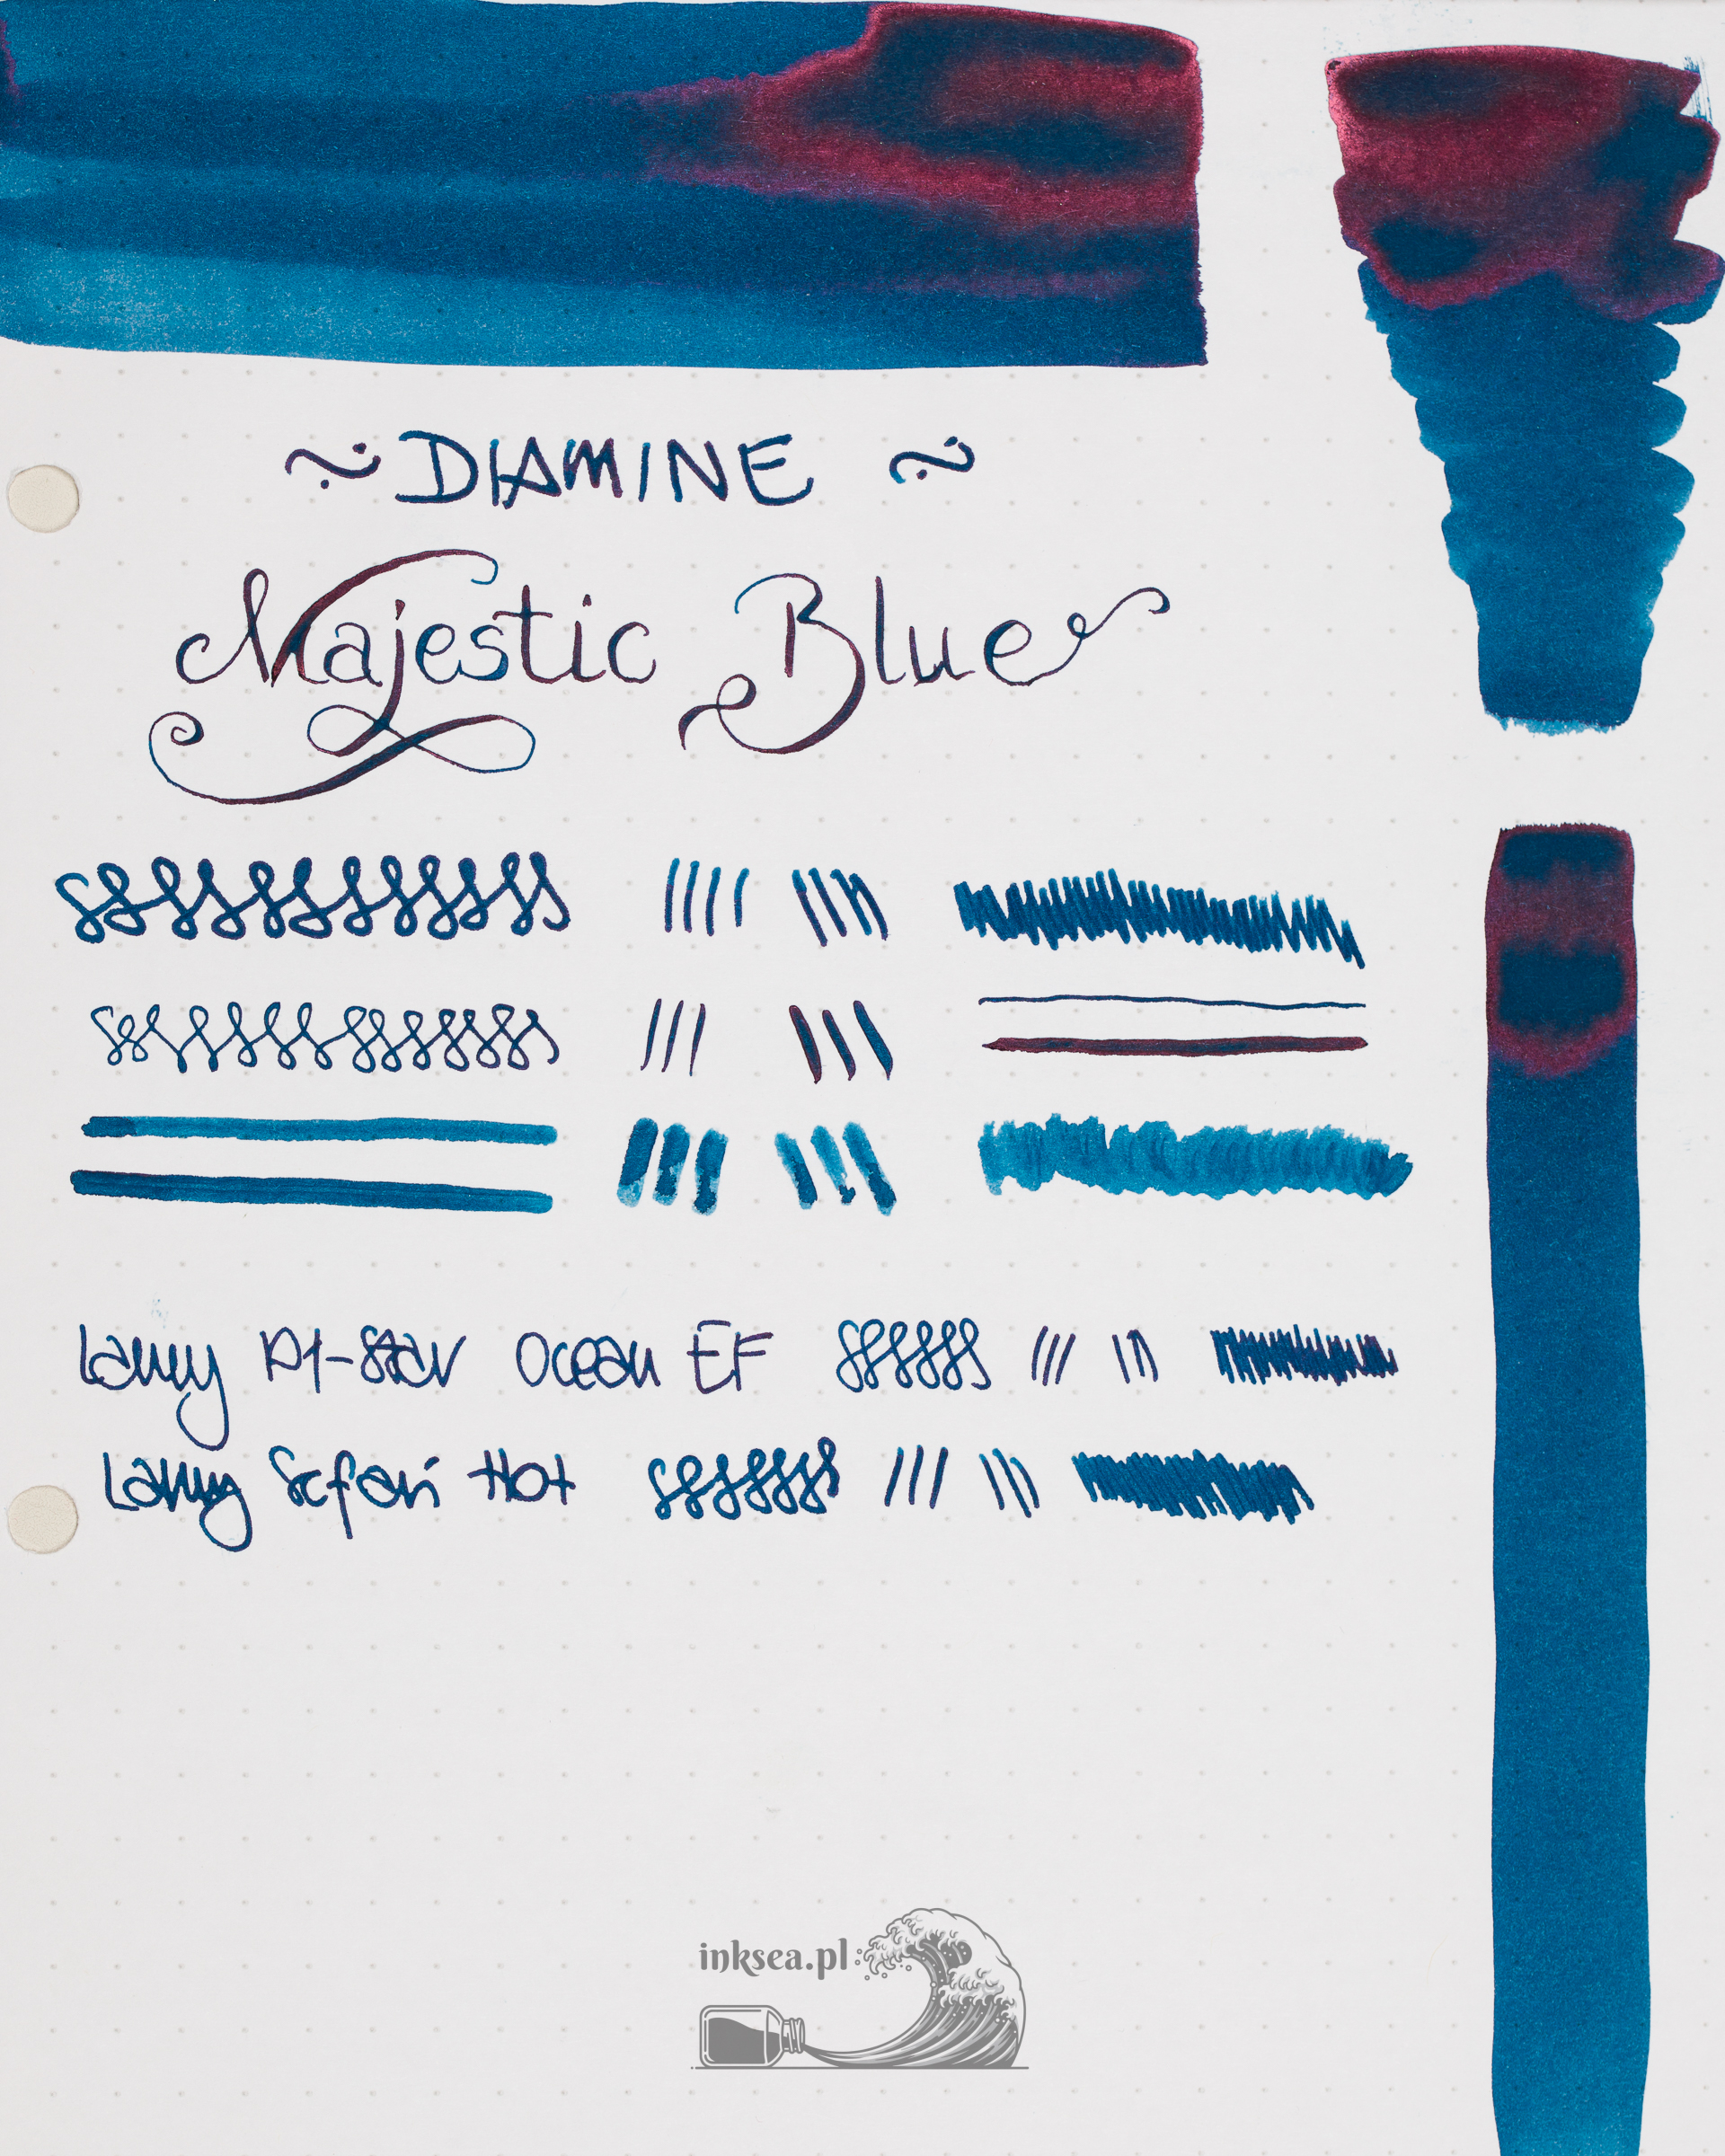 ~ DIAMINE ~
Majestic Blue
Lamy Al-Star Ocean EF
Lamy Safari Hot
inksea.pl